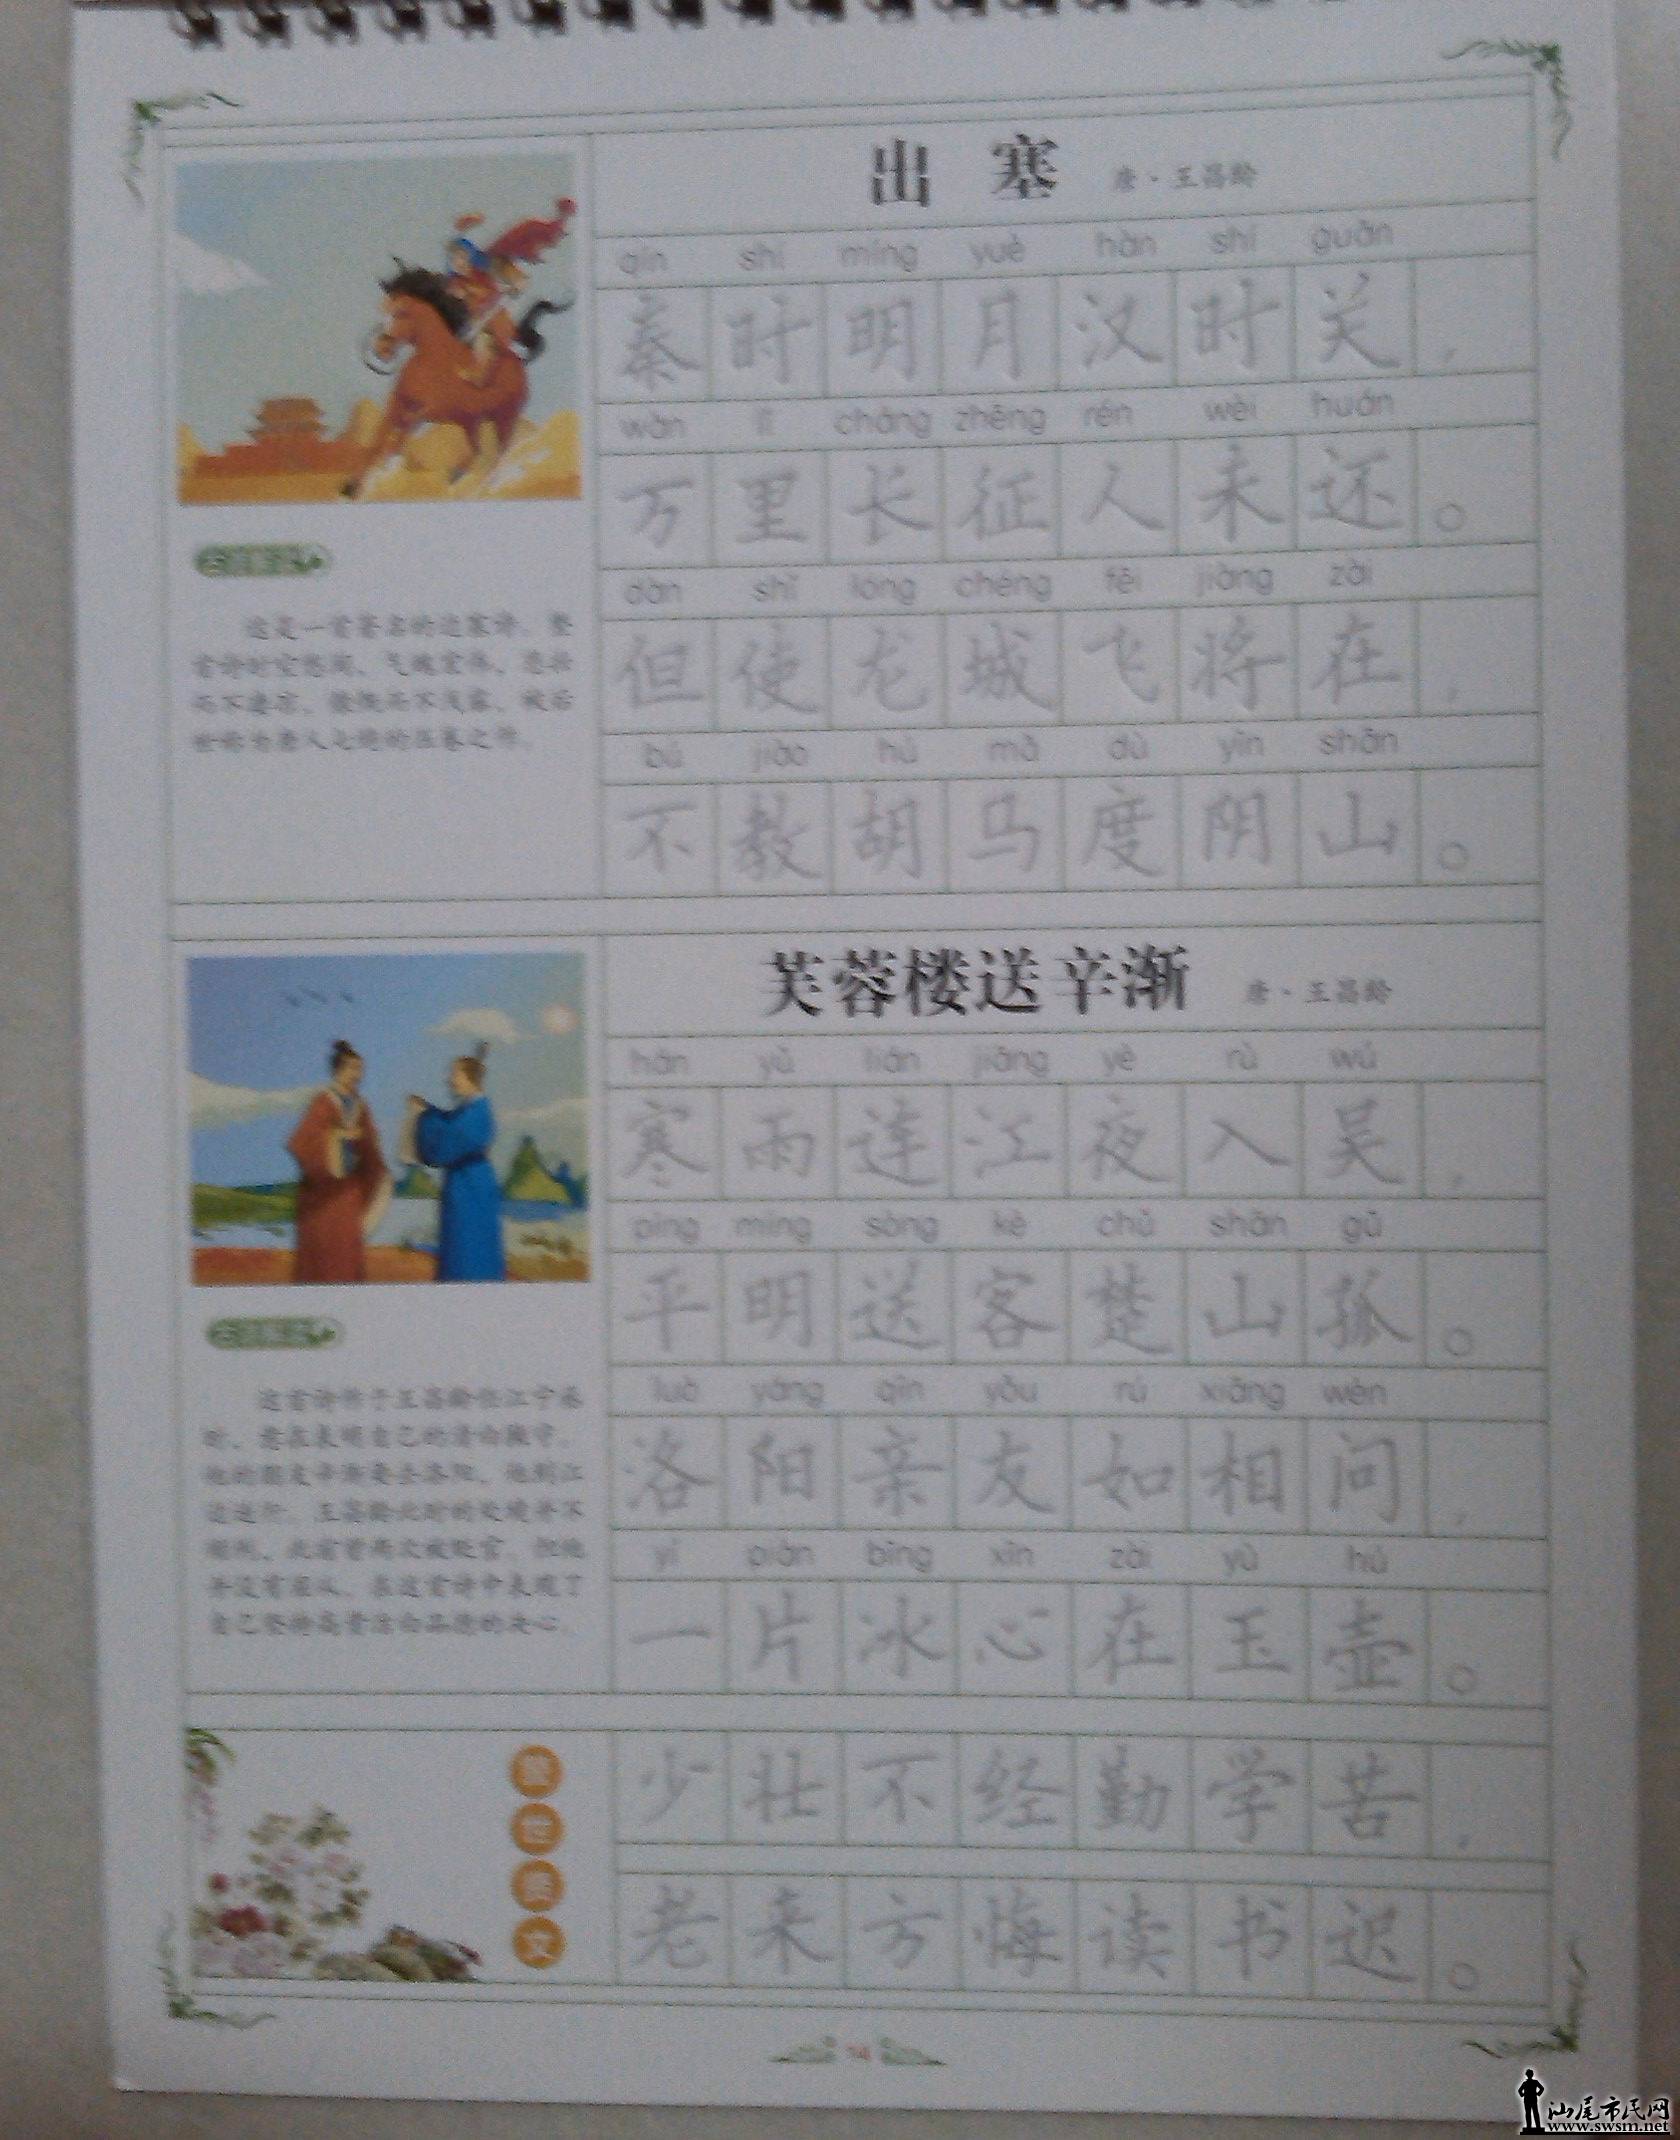 出塞 唐·王昌龄
qín shí míng yuè hàn shí guān
秦时明月汉时关，
wàn lǐ cháng zhēng rén wèi huán
万里长征人未还。
dàn shǐ lóng chéng fēi jiàng zài
但使龙城飞将在，
bú jiào hú mǎ dù yīn shān
不教胡马度阴山。
这是一首著名的边塞诗。整
首诗时空悠阔，气魄宏伟，悲壮
而不凄凉，慷慨而不浅露，被后
世称为唐人七绝的压卷之作。
芙蓉楼送辛渐 唐·王昌龄
hán yǔ lián jiāng yè rù wú
寒雨连江夜入吴，
píng míng sòng kè chǔ shān gū
平明送客楚山孤。
luò yáng qīn yǒu rú xiāng wèn
洛阳亲友如相问，
yí piàn bīng xīn zài yù hú
一片冰心在玉壶。
这首诗作于王昌龄任江宁丞
时，意在表明自己的清白操守。
他的朋友辛渐要去洛阳，他到江
边送行。王昌龄此时的处境并不
顺利，此前曾两次被贬官，但他
并没有屈从，在这首诗中表现了
自己坚持高贵洁白品德的决心。
少壮不经勤学苦，
老来方悔读书迟。
14
汕尾市民网
www.swsm.net